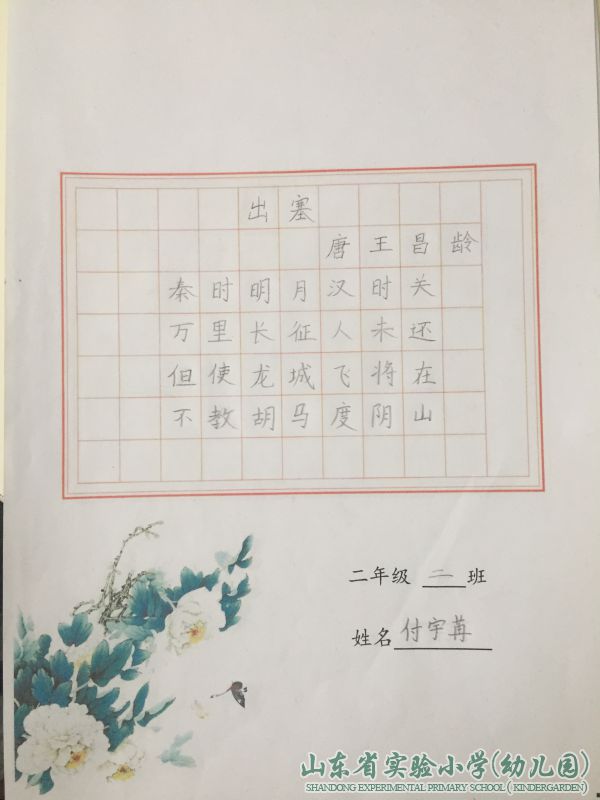 出塞
唐王昌龄
秦时明月汉时关
万里长征人未还
但使龙城飞将在
不教胡马度阴山
二年级 二 班
姓名 付宇苒
山东省实验小学(幼儿园)
SHANDONG EXPERIMENTAL PRIMARY SCHOOL ( KINDERGARDEN)